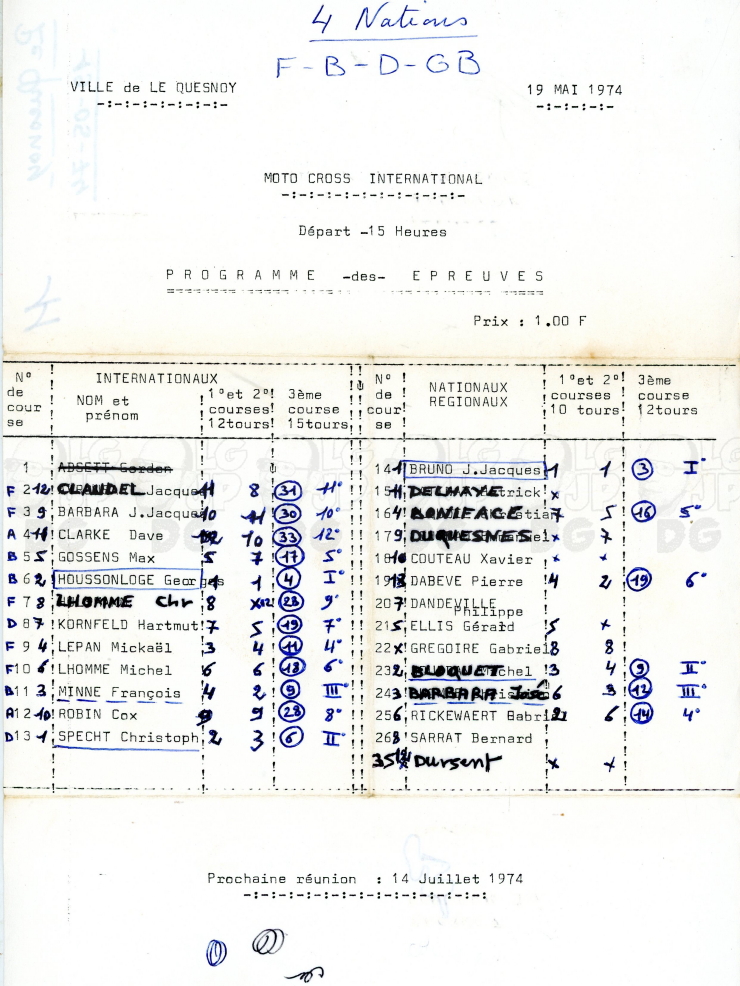 4 Nations
F-B-D-GB
VILLE de LE QUESNOY 19 MAI 1974
MOTO CROSS INTERNATIONAL
Départ -15 Heures
PROGRAMME -des- EPREUVES
Prix : 1.00 F
N° de course INTERNATIONAUX NOM et prénom 1° et 2° courses 12tours 3ème course 15tours N° de course NATIONAUX REGIONAUX 1° et 2° courses 10 tours 3ème course 12tours
1 ABSETT Gordon 14 1 BRUNO J.Jacques 1 1 3 I°
F 2 12 CLAUDEL Jacques 11 8 31 11° 15 11 DELHAYE Patrick x
F 3 9 BARBARA J.Jacques 10 11 30 10° 16 4 BONIFACE 7 5 16 5°
A 4 11 CLARKE Dave 12 10 33 12° 17 9 DUQUESNES x 7
B 5 5 GOSSENS Max 5 7 17 5° 18 10 COUTEAU Xavier x x
B 6 2 HOUSSONLOGE Georges 1 1 4 I° 19 DABEVE Pierre 4 2 19 6°
F 7 8 LHOMME Chr 8 x 28 9° 20 7 DANDEVILLE Philippe
D 8 7 KORNFELD Hartmut 7 5 19 7° 21 5 ELLIS Gérald 5 x
F 9 4 LEPAN Mickaël 3 4 11 4° 22 x GREGOIRE Gabriel 8 8
F 10 6 LHOMME Michel 6 6 18 6° 23 2 BLOQUET Michel 3 4 9 II°
B 11 3 MINNE François 4 2 9 III° 24 3 BARBARA José 6 3 12 III°
A 12 10 ROBIN Cox 9 9 28 8° 25 6 RICKEWAERT Babriel 2 6 14 4°
D 13 1 SPECHT Christoph 2 3 6 II° 26 8 SARRAT Bernard
35 Dursent x x
Prochaine réunion : 14 Juillet 1974